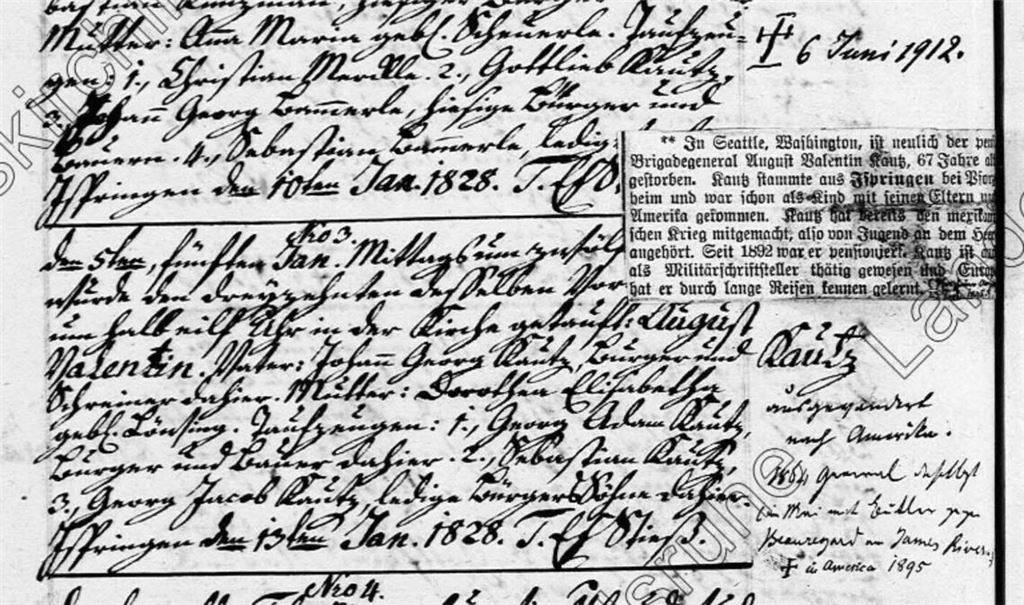 Mutter: Anna Maria gebl. Scheuerle. Taufzeu=
gen: 1., Christian Merkle. 2., Gottlieb Kautz,
3., Johann Georg Bammerle, hiesige Bürger und
Bauern. 4., Sebastian Bammerle, ledig
Ispringen den 10ten Jan. 1828. T.
† 6 Juni 1912.
** In Seattle, Washington, ist neulich der
Brigadegeneral August Valentin Kautz, 67 Jahre
gestorben. Kautz stammte aus Ispringen bei Pforz
heim und war schon als Kind mit seinen Eltern
Amerika gekommen. Kautz hat bereits den mexikani
schen Krieg mitgemacht, also von Jugend an dem
angehört. Seit 1892 war er pensioniert. Kautz ist
als Militärschriftsteller thätig gewesen und
hat er durch lange Reisen kennen gelernt.
Nro 3.
den 5ten, fünften Jan. Mittags um zwölf
wurde den dreyzehnten desselben Vor
um halb eilf Uhr in der Kirche getauft: August
Valentin. Vater: Johann Georg Kautz, Burger und
Schreiner dahier. Mutter: Dorothea Elisabetha
gebl. Lönsing. Taufzeugen: 1., Georg Adam Kautz,
Burger und Bauer dahier. 2., Sebastian Kautz,
3., Georg Jacob Kautz, ledige Bürgers Söhne dahier.
Ispringen den 13ten Jan. 1828. T. Stieß.
Kautz
ausgewandert
nach Amerika.
1864 General daselbst
im Mai mit Butler gegen
Beauregard am James River.
† in America 1895
Nro 4.